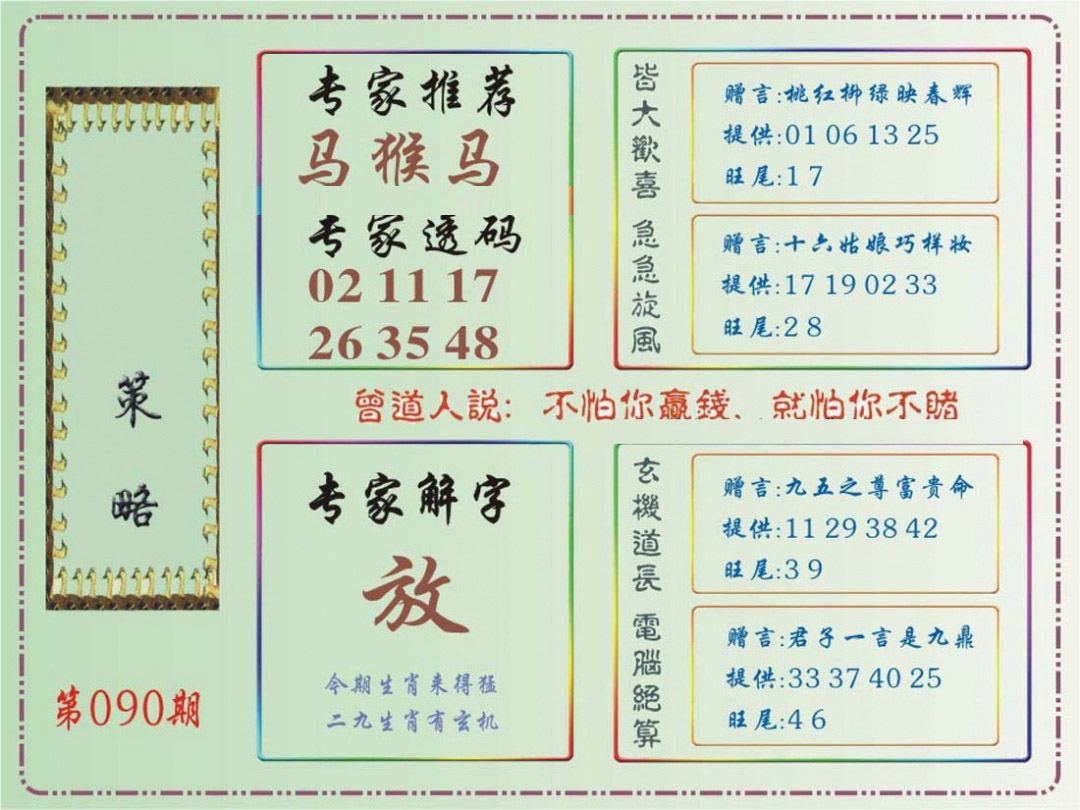 策略
第090期
专家推荐
马猴马
专家透码
02 11 17
26 35 48
皆大歡喜
赠言:桃红柳绿映春辉
提供:01 06 13 25
旺尾:1 7
急急旋風
赠言:十六姑娘巧样妆
提供:17 19 02 33
旺尾:2 8
曾道人説: 不怕你贏錢、就怕你不賭
专家解字
放
今期生肖来得猛
二九生肖有玄机
玄機道長
赠言:九五之尊富贵命
提供:11 29 38 42
旺尾:3 9
電腦絕算
赠言:君子一言是九鼎
提供:33 37 40 25
旺尾:4 6